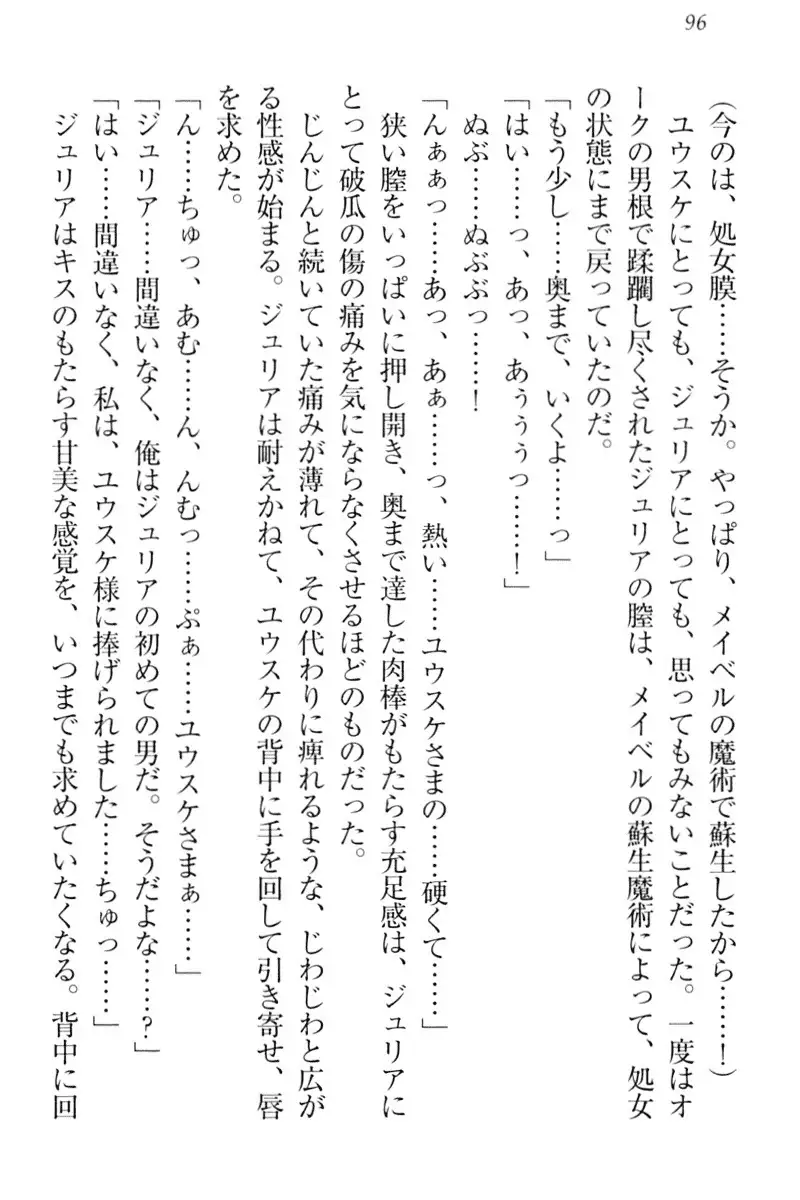 96
(今のは、処女膜……そうか。やっぱり、メイベルの魔術で蘇生したから……！)
ユウスケにとっても、ジュリアにとっても、思ってもみないことだった。一度はオ
ークの男根で蹂躙し尽くされたジュリアの膣は、メイベルの蘇生魔術によって、処女
の状態にまで戻っていたのだ。
「もう少し……奥まで、いくよ……っ」
「はい……っ、あっ、あぅぅぅっ……！」
ぬぷ……ぬぷぷっ……！
「んぁぁっ……あっ、あぁ……っ、熱い……ユウスケさまの……硬くて……」
狭い膣をいっぱいに押し開き、奥まで達した肉棒がもたらす充足感は、ジュリアに
とって破瓜の傷の痛みを気にならなくさせるほどのものだった。
じんじんと続いていた痛みが薄れて、その代わりに痺れるような、じわじわと広が
る性感が始まる。ジュリアは耐えかねて、ユウスケの背中に手を回して引き寄せ、唇
を求めた。
「ん……ちゅっ、あむ……ん、んむっ……ぷぁ……ユウスケさまぁ……」
「ジュリア……間違いなく、俺はジュリアの初めての男だ。そうだよな……？」
「はい……間違いなく、私は、ユウスケ様に捧げられました……ちゅっ……」
ジュリアはキスのもたらす甘美な感覚を、いつまでも求めていたくなる。背中に回